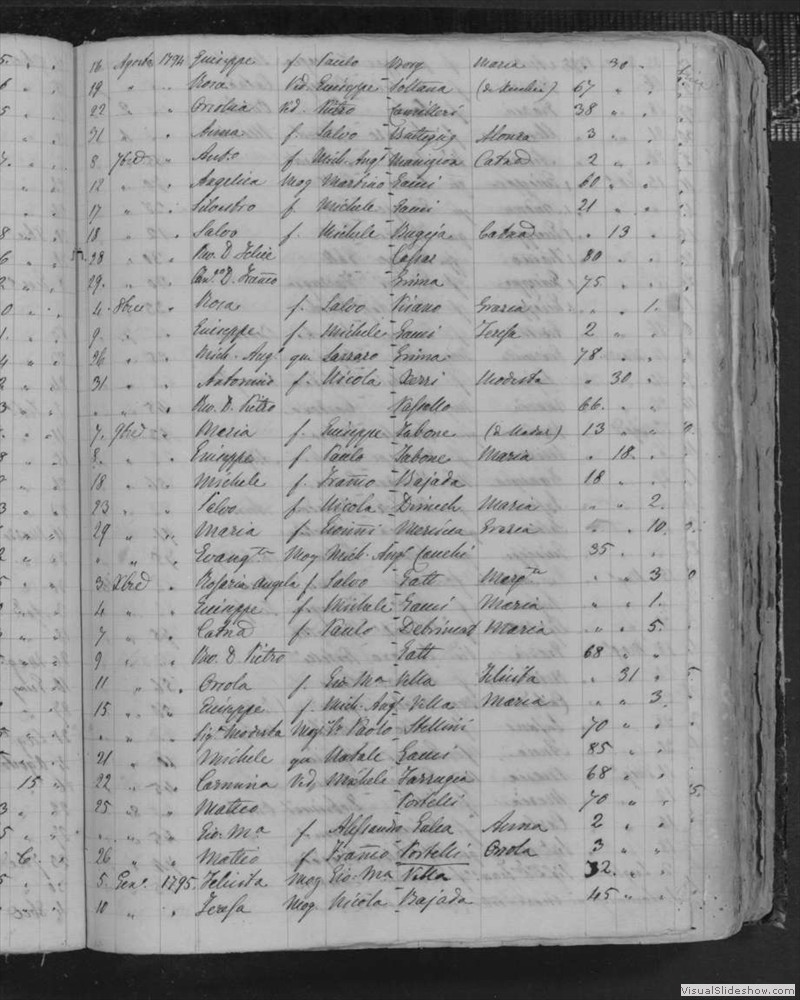 16 Agosto 1794 Giuseppe f. Paulo Borg Maria " 30 "
19 " " Rosa Vid. Giuseppe Soltana 67 " "
22 " " Orsolia Vid. Pietro Camilleri 38 " "
31 " " Anna f. Salvo Battaglia 3 " "
8 7bre " Anto f. Mich. Ango Mangion Catnd 2 " "
12 " " Angelica Mog Martino Gauci 60 " "
17 " " Silvestro f. Michele Gauci 21 " "
18 " " Salvo f. Michele Bugeja Catnd " 13 "
28 " " Rev. D. Felice Cassar 80 " "
29 " " Can.co D. Franco Grima 75 " "
4 8bre " Rosa f. Salvo Pisano Grazia " " 1.
9 " " Giuseppe f. Michele Gauci Teresa 2 " "
26 " " Mich. Angl. qm Lazzaro Grima 78 " "
31 " " Antonio f. Nicola Xerri Modesta " 30 "
" " " Rev. D. Pietro Vassallo 66 " "
7 9bre " Maria f. Giuseppe Tabone 13 " "
8 " " Giuseppe f. Paulo Tabone Maria " 18 "
18 " " Michele f. Franco Bajada 18 " "
23 " " Salvo f. Nicola Dimech Maria " " 2.
29 " " Maria f. Gionni Mercieca Grazia " " 10.
" " " Evangta Mog Mich. Angl 35 " "
3 Xbre " Rosaria Angela f. Salvo Gatt Margta " " 3
4 " " Giuseppe f. Michele Gauci Maria " " 1.
7 " " Catnd f. Paulo Debrincat Maria " " 5.
9 " " Rev. D. Pietro Gatt 68 " "
11 " " Orsola f. Gio Ma Vella Felicita " 31 "
15 " " Giuseppe f. Mich. Angl Vella Maria " " 3.
" " " Sigra Modesta Mog Paolo Stellini 70 " "
21 " " Michele qm Natale Gauci 85 " "
22 " " Carmina Vid. Michele Farrugia 68 " "
25 " " Matteo Portelli 70 " "
" " " Gio. Ma f. Alessandro Galea Anna 2 " "
26 " " Matteo f. Franco Portelli Orsola 3 " "
5 Gena. 1795 Felicita Mog Gio. Ma Vella 32 " "
10 " " Teresa Mog. Nicola Bajada 45 " "
VisualSlideshow.com